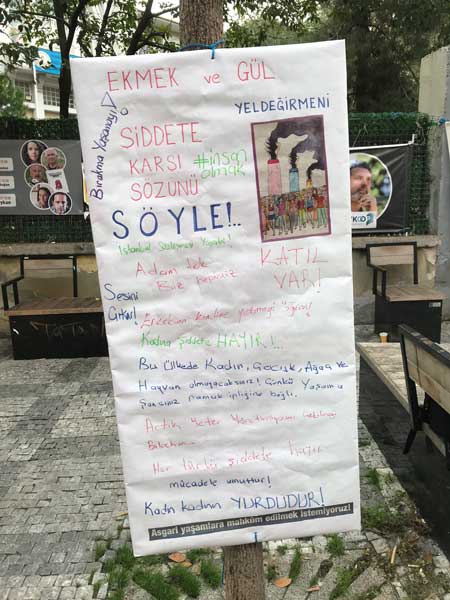 EKMEK ve GÜL
YELDEĞİRMENİ
Bırakma Yaşanayı!
ŞİDDETE
KARŞI
SÖZÜNÜ
#insan
olmak
SÖYLE!..
İstanbul Sözleşmesi Yaşatır!
Adam tek
Bile Yapmaz
KATIL
VAR!
Sesini
Çıkar!
Kadına şiddete HAYIR!...
Bu Ülkede Kadın, Çocuk, Ağaç ve
Hayvan olmayacaksınız! Çünkü Yaşama
Şansınız pamuk ipliğine bağlı.
Artık Yeter
Her türlü şiddete hayır
mücadele umuttur!
Kadın kadının YURDUDUR!
Asgari yaşamlara mahkûm edilmek istemiyoruz!